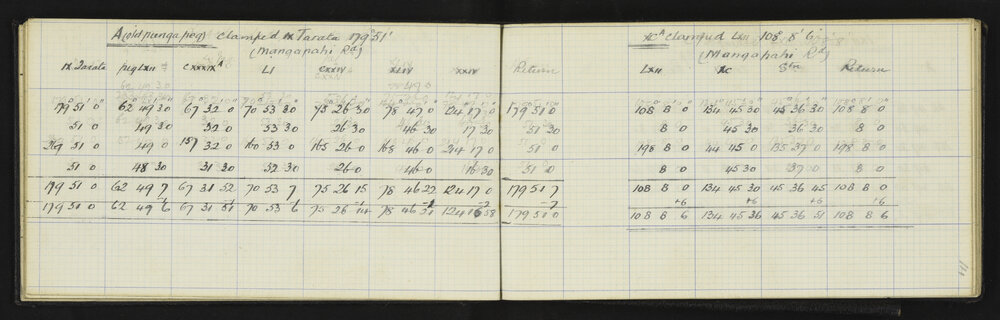 A (old punga peg) Clamped IX Tarata 179° 51'
(Mangapahi Rd)
IX. Tarata peg LXII CXXXIX A LI CXXIV XLIV XXIV Return
179 51 0 62 49 30 67 32 0 70 53 30 75 26 30 78 47 0 124 17 0 179 51 0
51 0 49 30 32 0 53 30 26 30 46 30 17 30 51 30
269 51 0 49 0 157 32 0 160 53 0 165 26 0 168 46 0 214 17 0 51 0
51 0 48 30 31 30 52 30 26 0 46 0 16 30 51 0
179 51 0 62 49 7 67 31 52 70 53 7 75 26 15 78 46 22 124 17 0 179 51 7
-1 -1 -1 -1 -1 -2 -7
179 51 0 62 49 6 67 31 51 70 53 6 75 26 14 78 46 21 124 16 58 179 51 0
XC A Clamped LXII 108° 8' 6"
(Mangapahi Rd)
LXII XC Stn Return
108 8 0 134 45 30 45 36 30 108 8 0
8 0 45 30 36 30 8 0
198 8 0 44 45 0 135 37 0 198 8 0
8 0 45 30 37 0 8 0
108 8 0 134 45 30 45 36 45 108 8 0
+6 +6 +6 +6
108 8 6 134 45 36 45 36 51 108 8 6